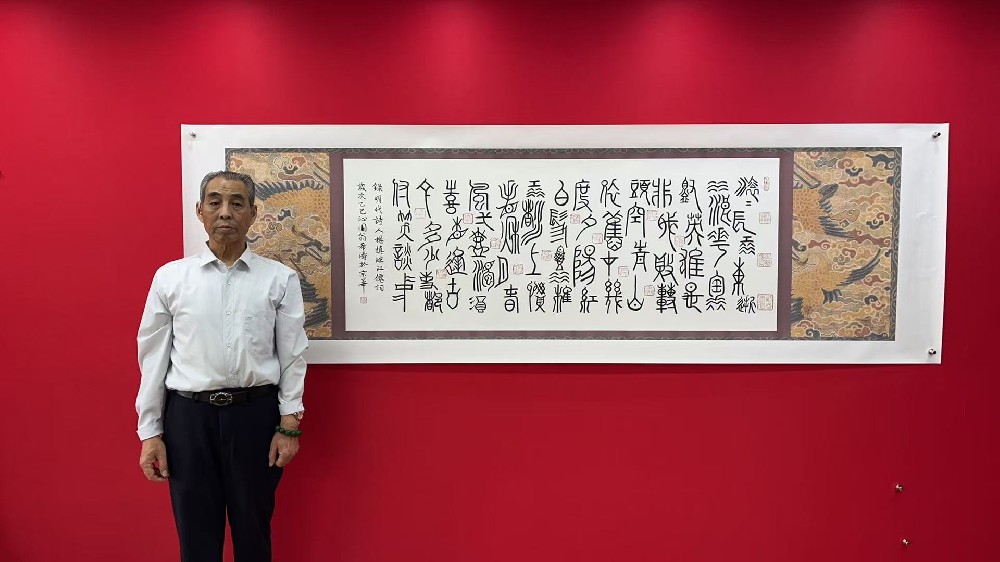 滾〻長江東逝
水浪花淘
盡英雄是
非成敗轉
頭空青山
依舊在幾
度夕陽紅
白髮漁樵
江渚上慣
看秋月春
風一壺濁酒
喜相逢古
今多少事都
付笑談中
錄明代詩人楊慎臨江僊詞
歲次乙巳沁園翁於京華